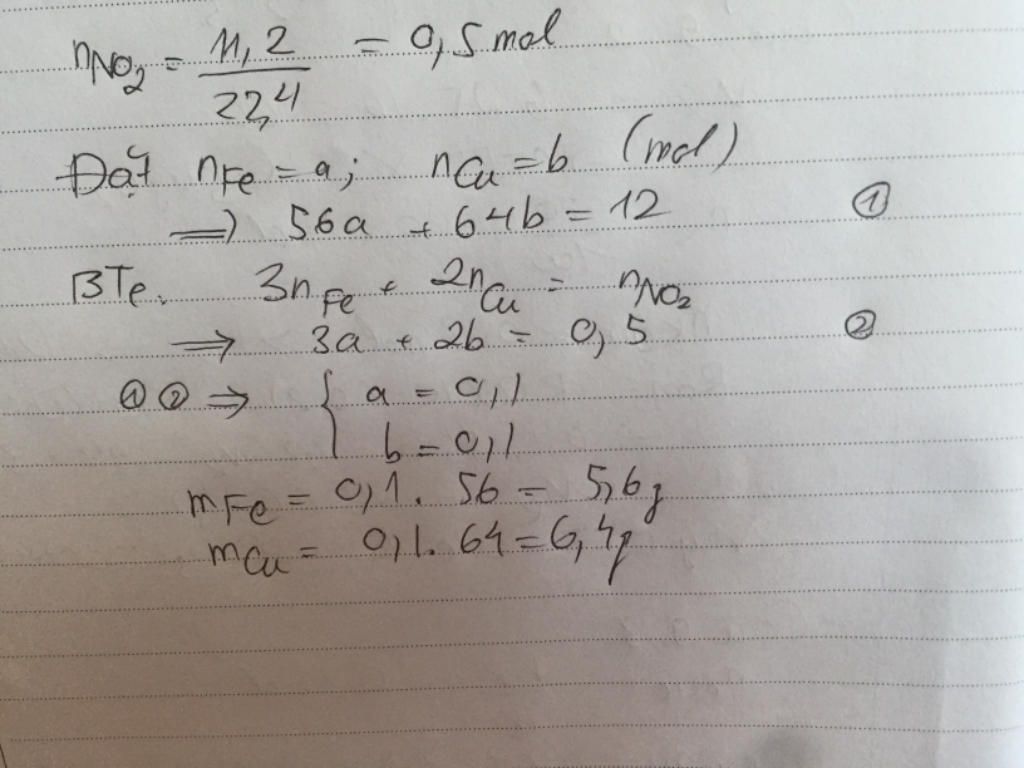 nNO2 = 11,2 / 22,4 = 0,5 mol
Đặt nFe = a; nCu = b (mol)
=> 56a + 64b = 12 ①
BTe. 3nFe + 2nCu = nNO2
=> 3a + 2b = 0,5 ②
① ② => { a = 0,1
b = 0,1
mFe = 0,1. 56 = 5,6g
mCu = 0,1. 64 = 6,4g